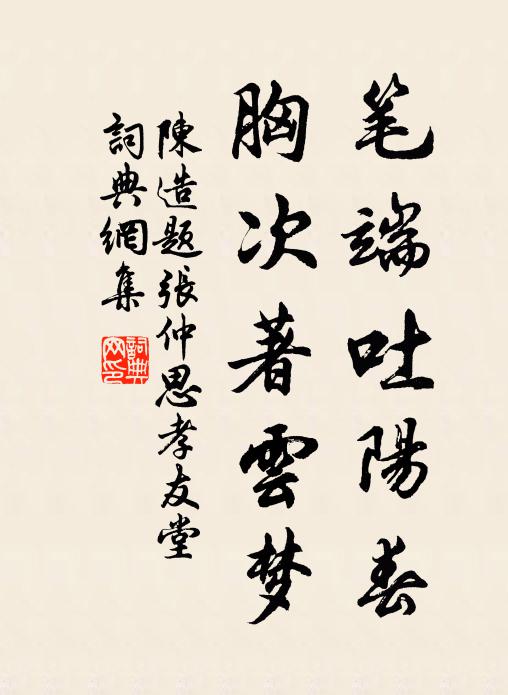 笔端吐陽春
胸次著雲梦
陳造題張仲思孝友堂
詞典網集
詞典網印